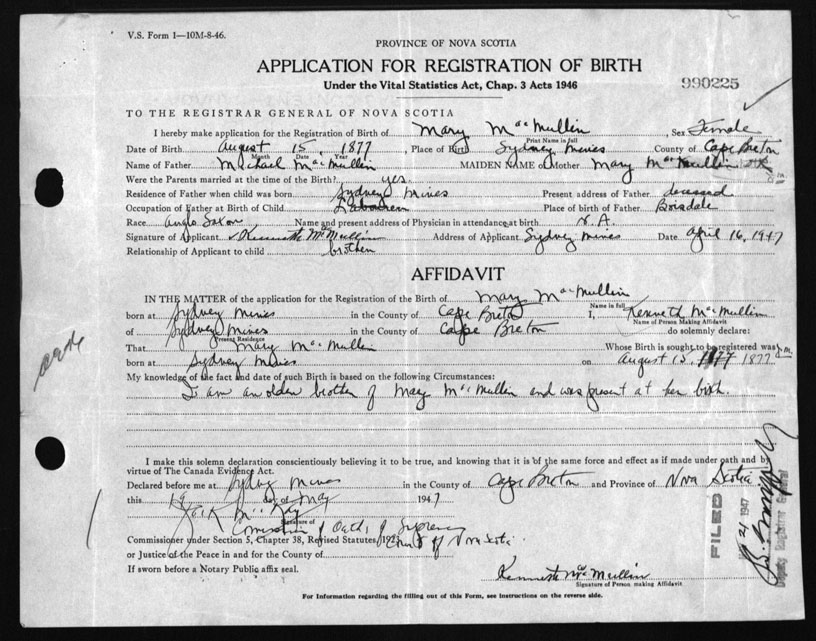 V.S. Form 1—10M-8-46.
PROVINCE OF NOVA SCOTIA
APPLICATION FOR REGISTRATION OF BIRTH
Under the Vital Statistics Act, Chap. 3 Acts 1946
990225
TO THE REGISTRAR GENERAL OF NOVA SCOTIA
I hereby make application for the Registration of Birth of Mary MacMullin, Sex Female
Print Name in full
Date of Birth August 15, 1877, Place of Birth Sydney Mines County of Cape Breton
Month Date Year
Name of Father Michael MacMullin MAIDEN NAME of Mother Mary MacMullin
Were the Parents married at the time of Birth? yes
Residence of Father when child was born Sydney Mines Present address of Father deceased
Occupation of Father at Birth of Child Place of birth of Father Boisdale
Race Anglo Saxon Name and present address of Physician in attendance at birth N.A.
Signature of Applicant Kenneth McMullin Address of Applicant Sydney Mines Date April 16, 1947
Relationship of Applicant to child brother
AFFIDAVIT
IN THE MATTER of the application for the Registration of the Birth of Mary MacMullin
Name in full
born at Sydney Mines in the County of Cape Breton I, Kenneth MacMullin
Name of Person Making Affidavit
of Sydney Mines in the County of Cape Breton do solemnly declare:
Present Residence
That Mary MacMullin Whose Birth is sought to be registered was
born at Sydney Mines on August 15 1877 1877
My knowledge of the fact and date of such Birth is based on the following Circumstances:
I am an older brother of Mary MacMullin and was present at her birth.
I make this solemn declaration conscientiously believing it to be true, and knowing that it is of the same force and effect as if made under oath and by
virtue of The Canada Evidence Act.
Declared before me at Sydney Mines in the County of Cape Breton and Province of Nova Scotia
this 19 day of May 1947
Signature of
Commissioner under Section 5, Chapter 38, Revised Statutes, 192 Court of Nova Scotia
or Justice of the Peace in and for the County of
If sworn before a Notary Public affix seal.
Kenneth McMullin
Signature of Person making Affidavit
For Information regarding the filling out of this Form, see instructions on the reverse side.
FILED
21 1947
Deputy Registrar General